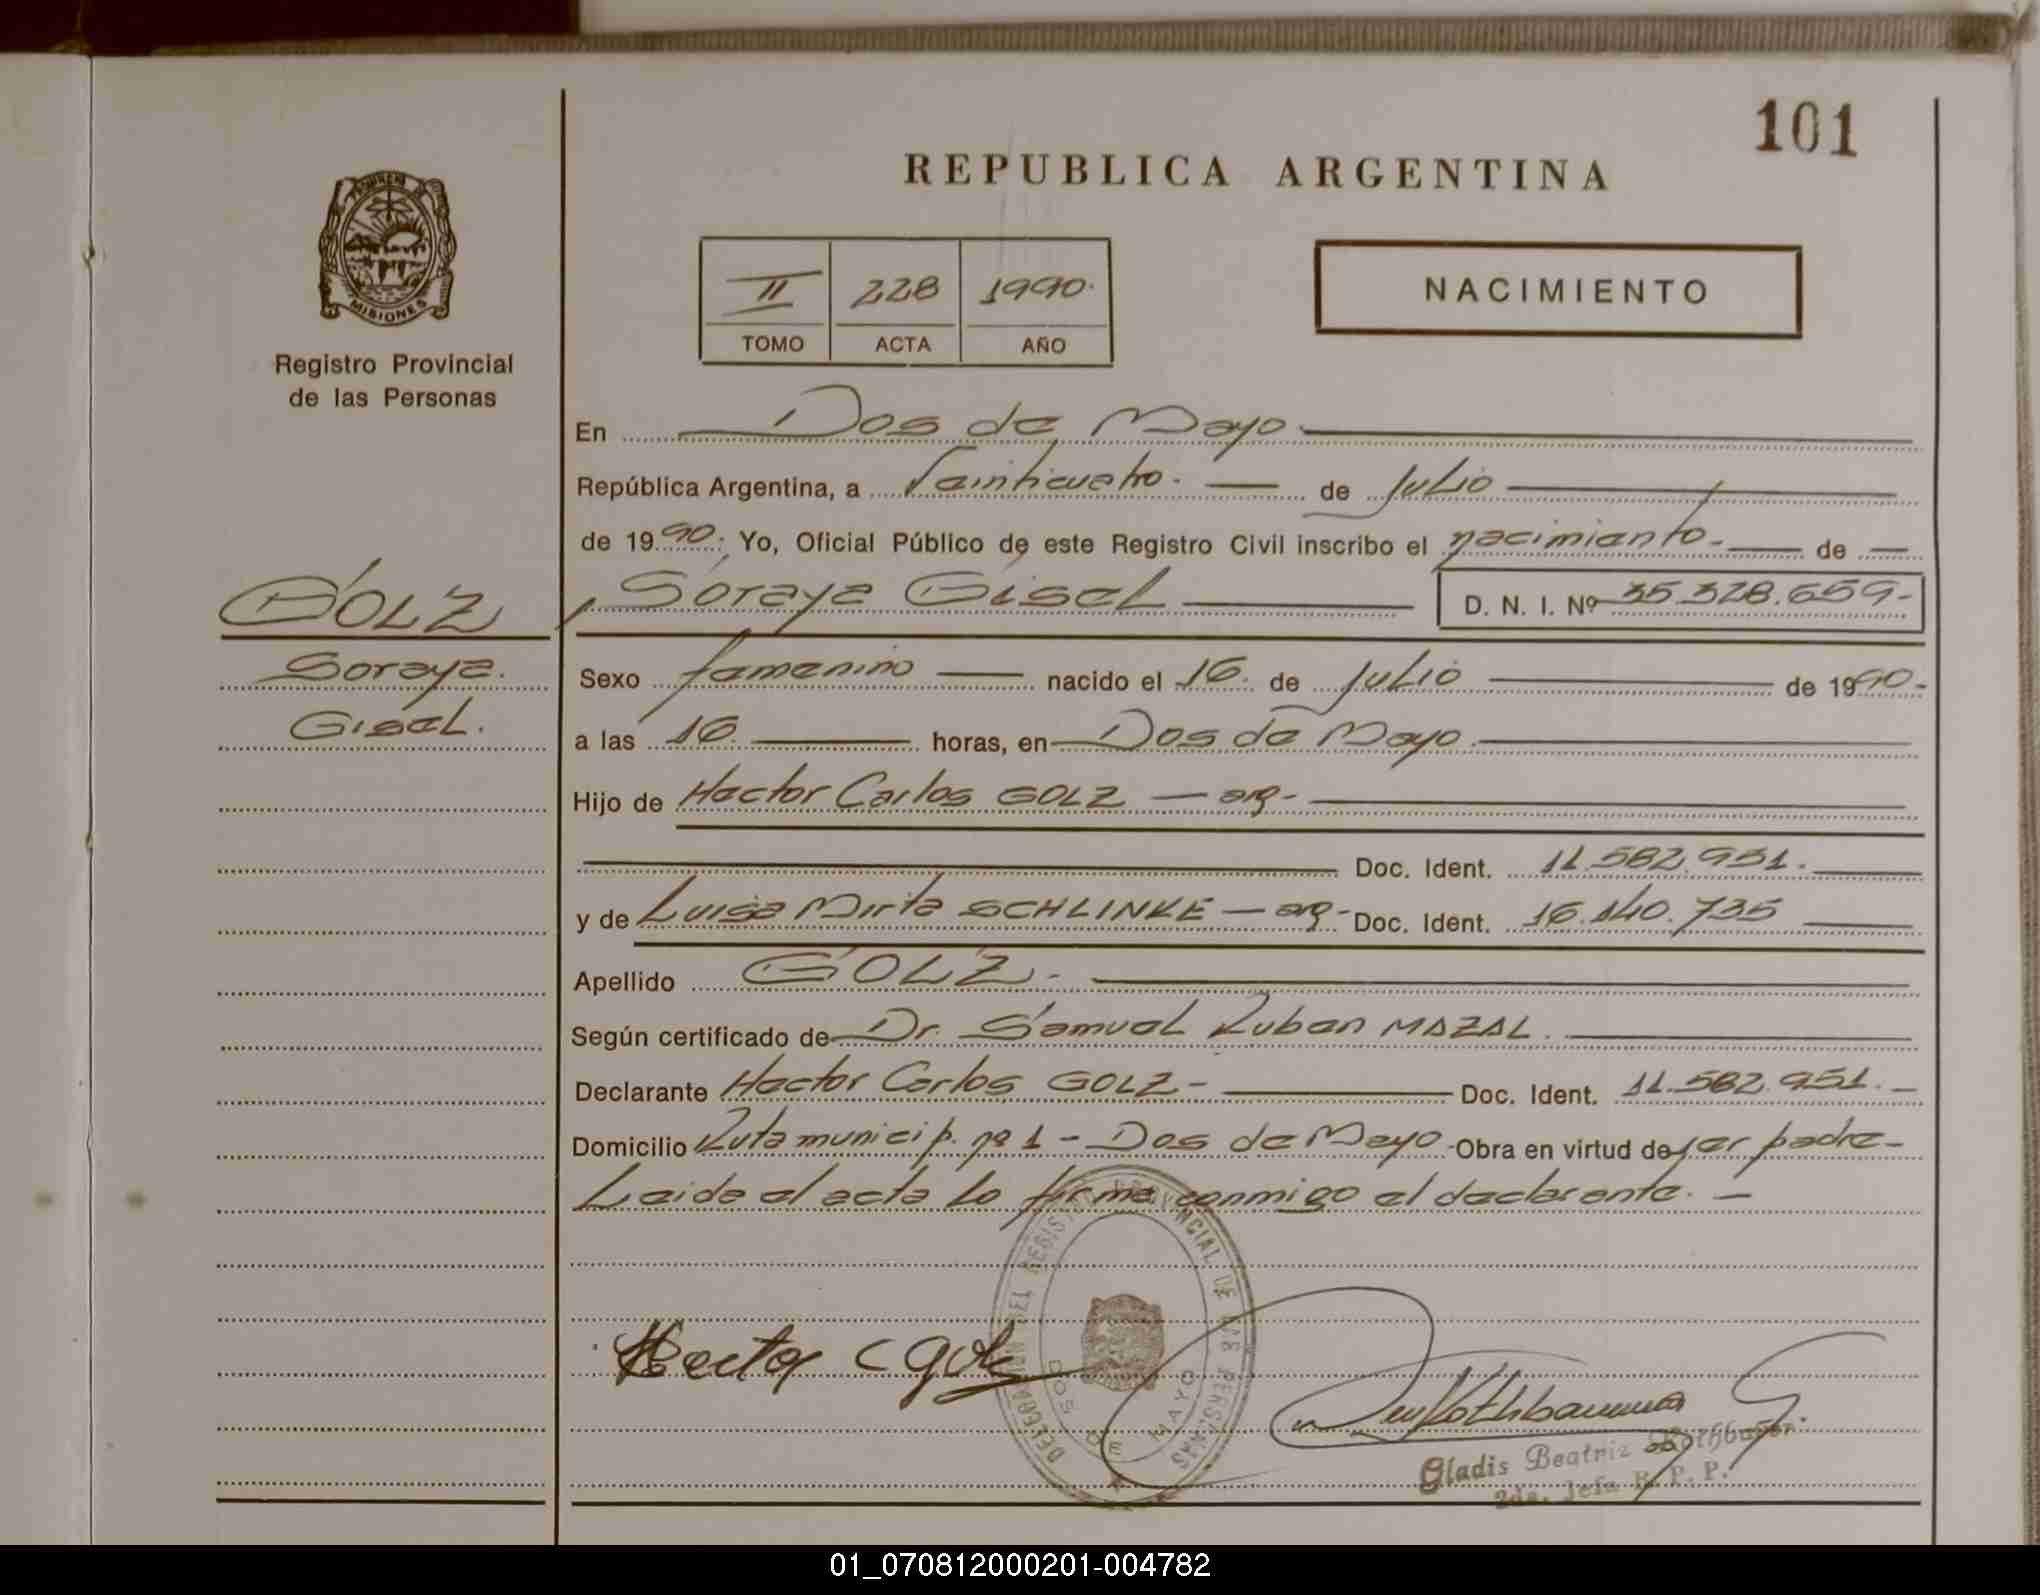 101
REPUBLICA ARGENTINA
PROVINCIA DE
MISIONES
Registro Provincial
de las Personas
NACIMIENTO
II 228 1990.
TOMO ACTA AÑO
En Dos de Mayo
República Argentina, a Veinticuatro. de Julio
de 1990. Yo, Oficial Público de este Registro Civil inscribo el nacimiento. de
GOLZ
Soraya Gisel D. N. I. Nº 35.328.659.-
Soraya.
Gisel.
Sexo femenino nacido el 16. de Julio de 1990.-
a las 16. horas, en Dos de Mayo.
Hijo de Hector Carlos GOLZ — arg-
Doc. Ident. 11.582.951.
y de Luisa Mirta SCHLINKE — arg- Doc. Ident. 16.140.735
Apellido GOLZ.
Según certificado de Dr. Samuel Ruben MAZAL.
Declarante Hector Carlos GOLZ- Doc. Ident. 11.582.951.-
Domicilio Ruta municip. nº 1 - Dos de Mayo - Obra en virtud de ser padre-
Leida el acta lo firma conmigo el declarante. —
DELEGACION DEL REGISTRO PROVINCIAL DE LAS PERSONAS
DOS DE MAYO
Hector C Golz
Rothbauer
Gladis Beatriz Rothbauer
2da. Jefa R. P. P.
01_070812000201-004782